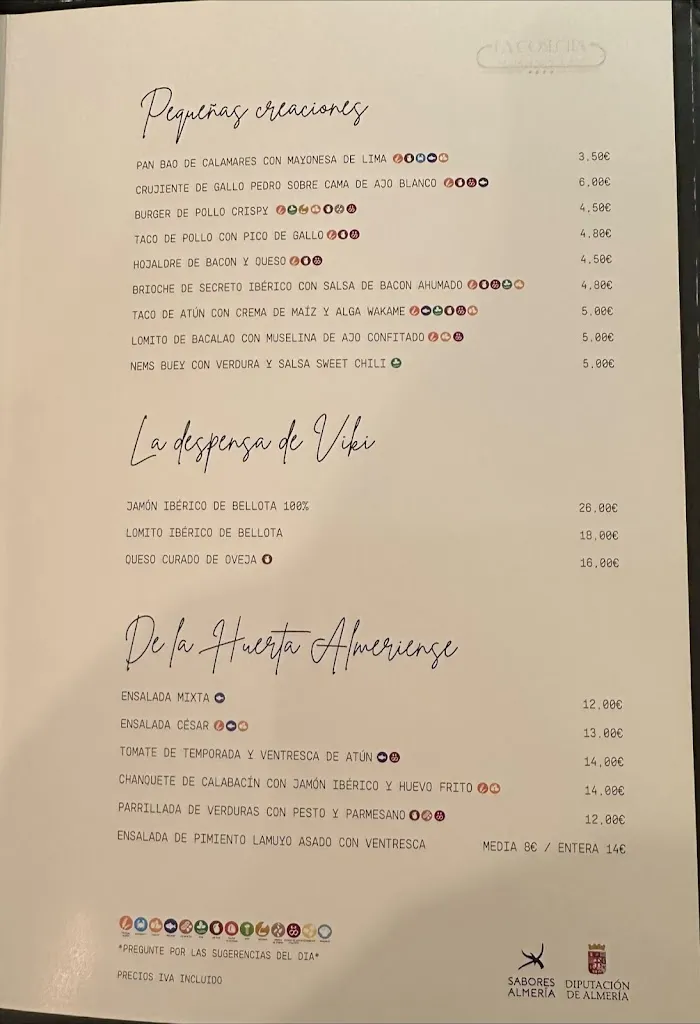 LA CONCHA
Pequeñas creaciones
PAN BAO DE CALAMARES CON MAYONESA DE LIMA 3.50€
CRUJIENTE DE GALLO PEDRO SOBRE CAMA DE AJO BLANCO 6.00€
BURGER DE POLLO CRISPY 4.50€
TACO DE POLLO CON PICO DE GALLO 4.80€
HOJALDRE DE BACON Y QUESO 4.50€
BRIOCHE DE SECRETO IBÉRICO CON SALSA DE BACON AHUMADO 4.80€
TACO DE ATÚN CON CREMA DE MAÍZ Y ALGA WAKAME 5.00€
LOMITO DE BACALAO CON MUSELINA DE AJO CONFITADO 5.00€
NEMS BUEY CON VERDURA Y SALSA SWEET CHILI 5.00€
La despensa de Viki
JAMÓN IBÉRICO DE BELLOTA 100% 26.00€
LOMITO IBÉRICO DE BELLOTA 18.00€
QUESO CURADO DE OVEJA 16.00€
De la Huerta Almeriense
ENSALADA MIXTA 12.00€
ENSALADA CÉSAR 13.00€
TOMATE DE TEMPORADA Y VENTRESCA DE ATÚN 14.00€
CHANQUETE DE CALABACÍN CON JAMÓN IBÉRICO Y HUEVO FRITO 14.00€
PARRILLADA DE VERDURAS CON PESTO Y PARMESANO 12.00€
ENSALADA DE PIMIENTO LAMUYO ASADO CON VENTRESCA MEDIA 8€ / ENTERA 14€
*PREGUNTE POR LAS SUGERENCIAS DEL DIA*
PRECIOS IVA INCLUIDO
SABORES ALMERÍA
DIPUTACIÓN DE ALMERÍA